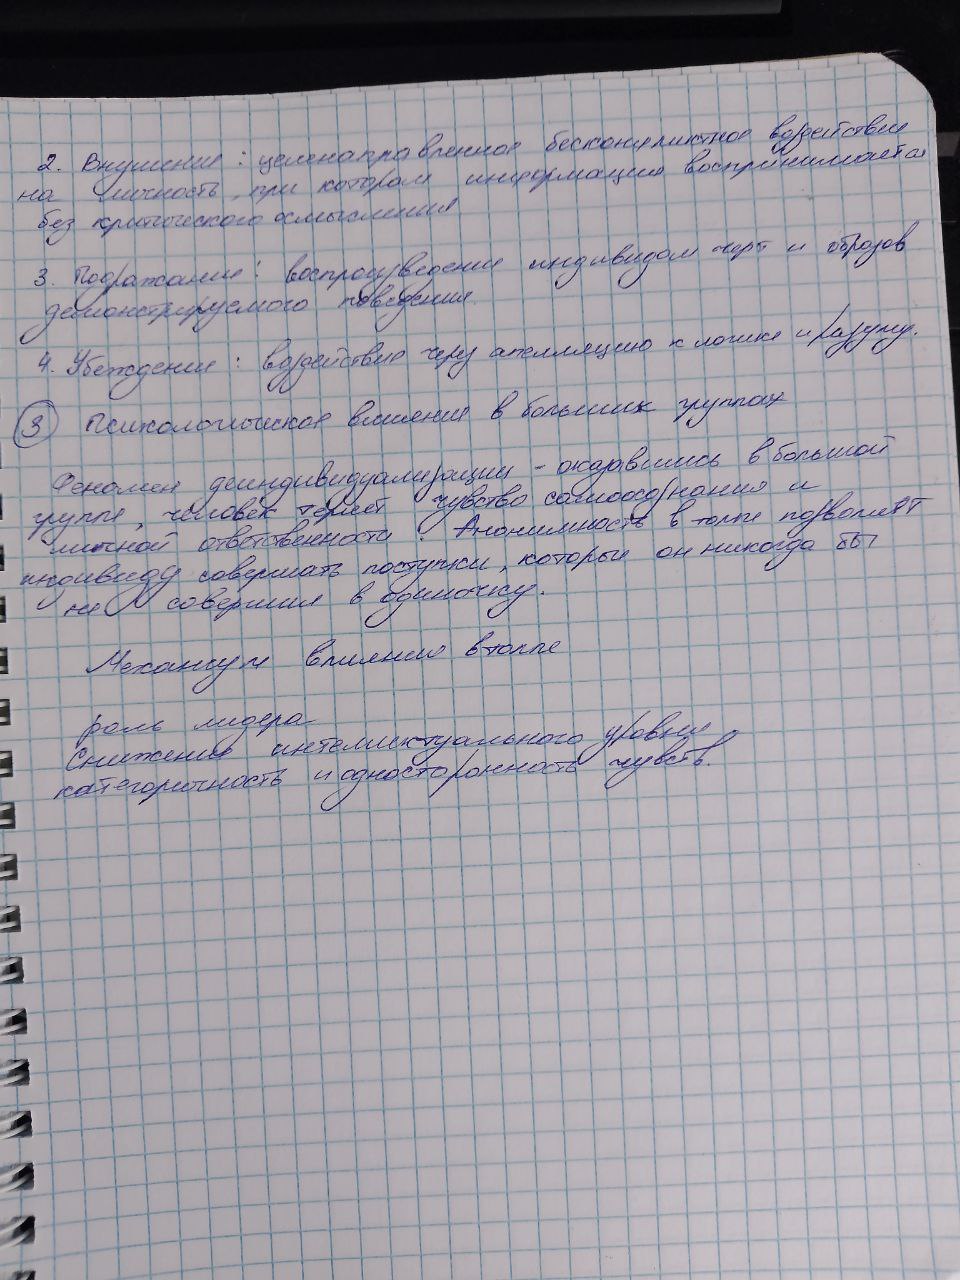 2. Внушение: целенаправленное бесконфликтное воздействие
на личность, при котором информация воспринимается
без критического осмысления
3. Подражание: воспроизведение индивидом черт и образов
демонстрируемого поведения.
4. Убеждение: воздействие через апелляцию к логике и разуму.
3 Психологическое влияние в больших группах
Феномен деиндивидуализации - оказавшись в большой
группе, человек теряет чувство самоосознания и
личной ответственности. Анонимность в толпе позволяет
индивиду совершать поступки, которые он никогда бы
не совершил в одиночку.
Механизм влияния в толпе
роль лидера
Снижение интеллектуального уровня
категоричность и односторонность чувств.